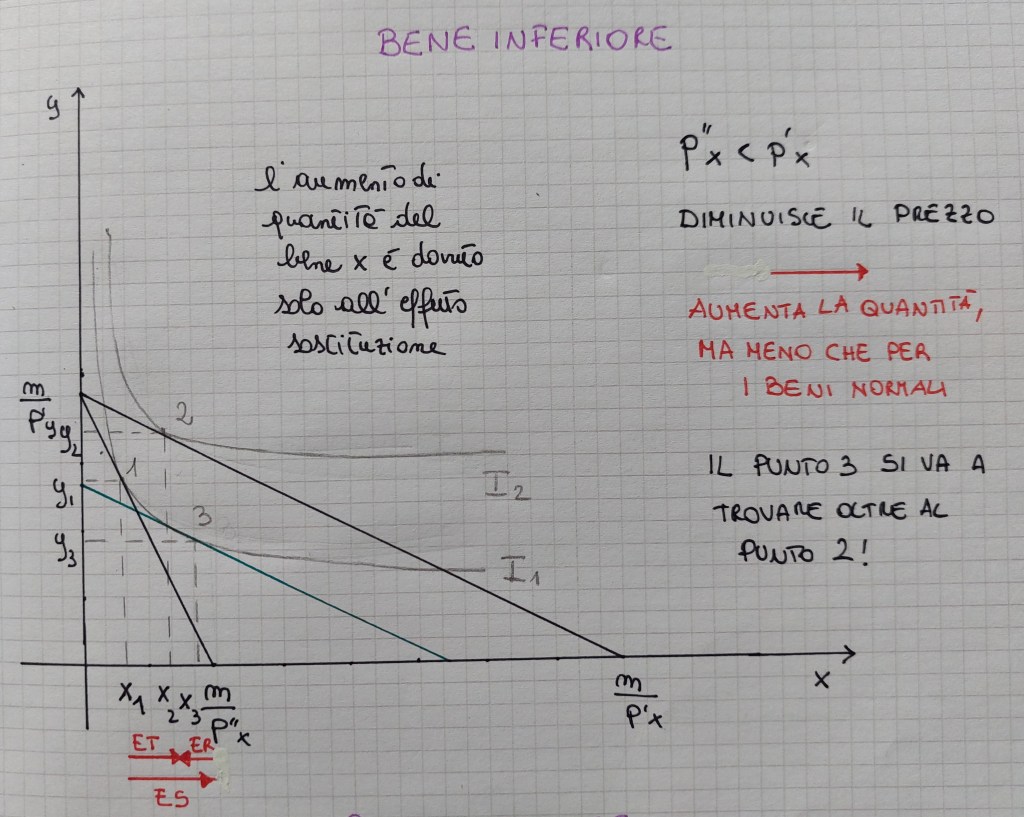 BENE INFERIORE
y
l'aumento di
quantità del
bene x è dovuto
solo all'effetto
sostituzione
P''x < P'x
DIMINUISCE IL PREZZO
AUMENTA LA QUANTITÀ,
MA MENO CHE PER
I BENI NORMALI
IL PUNTO 3 SI VA A
TROVARE OLTRE AL
PUNTO 2!
m
P'y
y2
2
1
y1
3
y3
I2
I1
x1 x2 x3
m
P''x
m
P'x
x
ET ER
ES